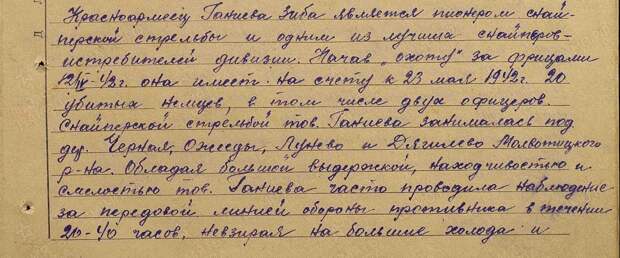 Красноармеец Ганиева Зиба является пионером снай-
перской стрельбы и одним из лучших снайперов-
истребителей дивизии. Начав "охоту" за фрицами
12/IV-42г. она имеет на счету к 23 мая 1942г. 20
убитых немцев, в том числе двух офицеров.
Снайперской стрельбой тов. Ганиева занималась под
дер. Черная, Ожееды, Лунево и Дягилево Молвотицкого
р-на. Обладая большой выдержкой, находчивостью и
смелостью тов. Ганиева часто проводила наблюдение
за передовой линией обороны противника в течении
20-40 часов, невзирая на большие холода и